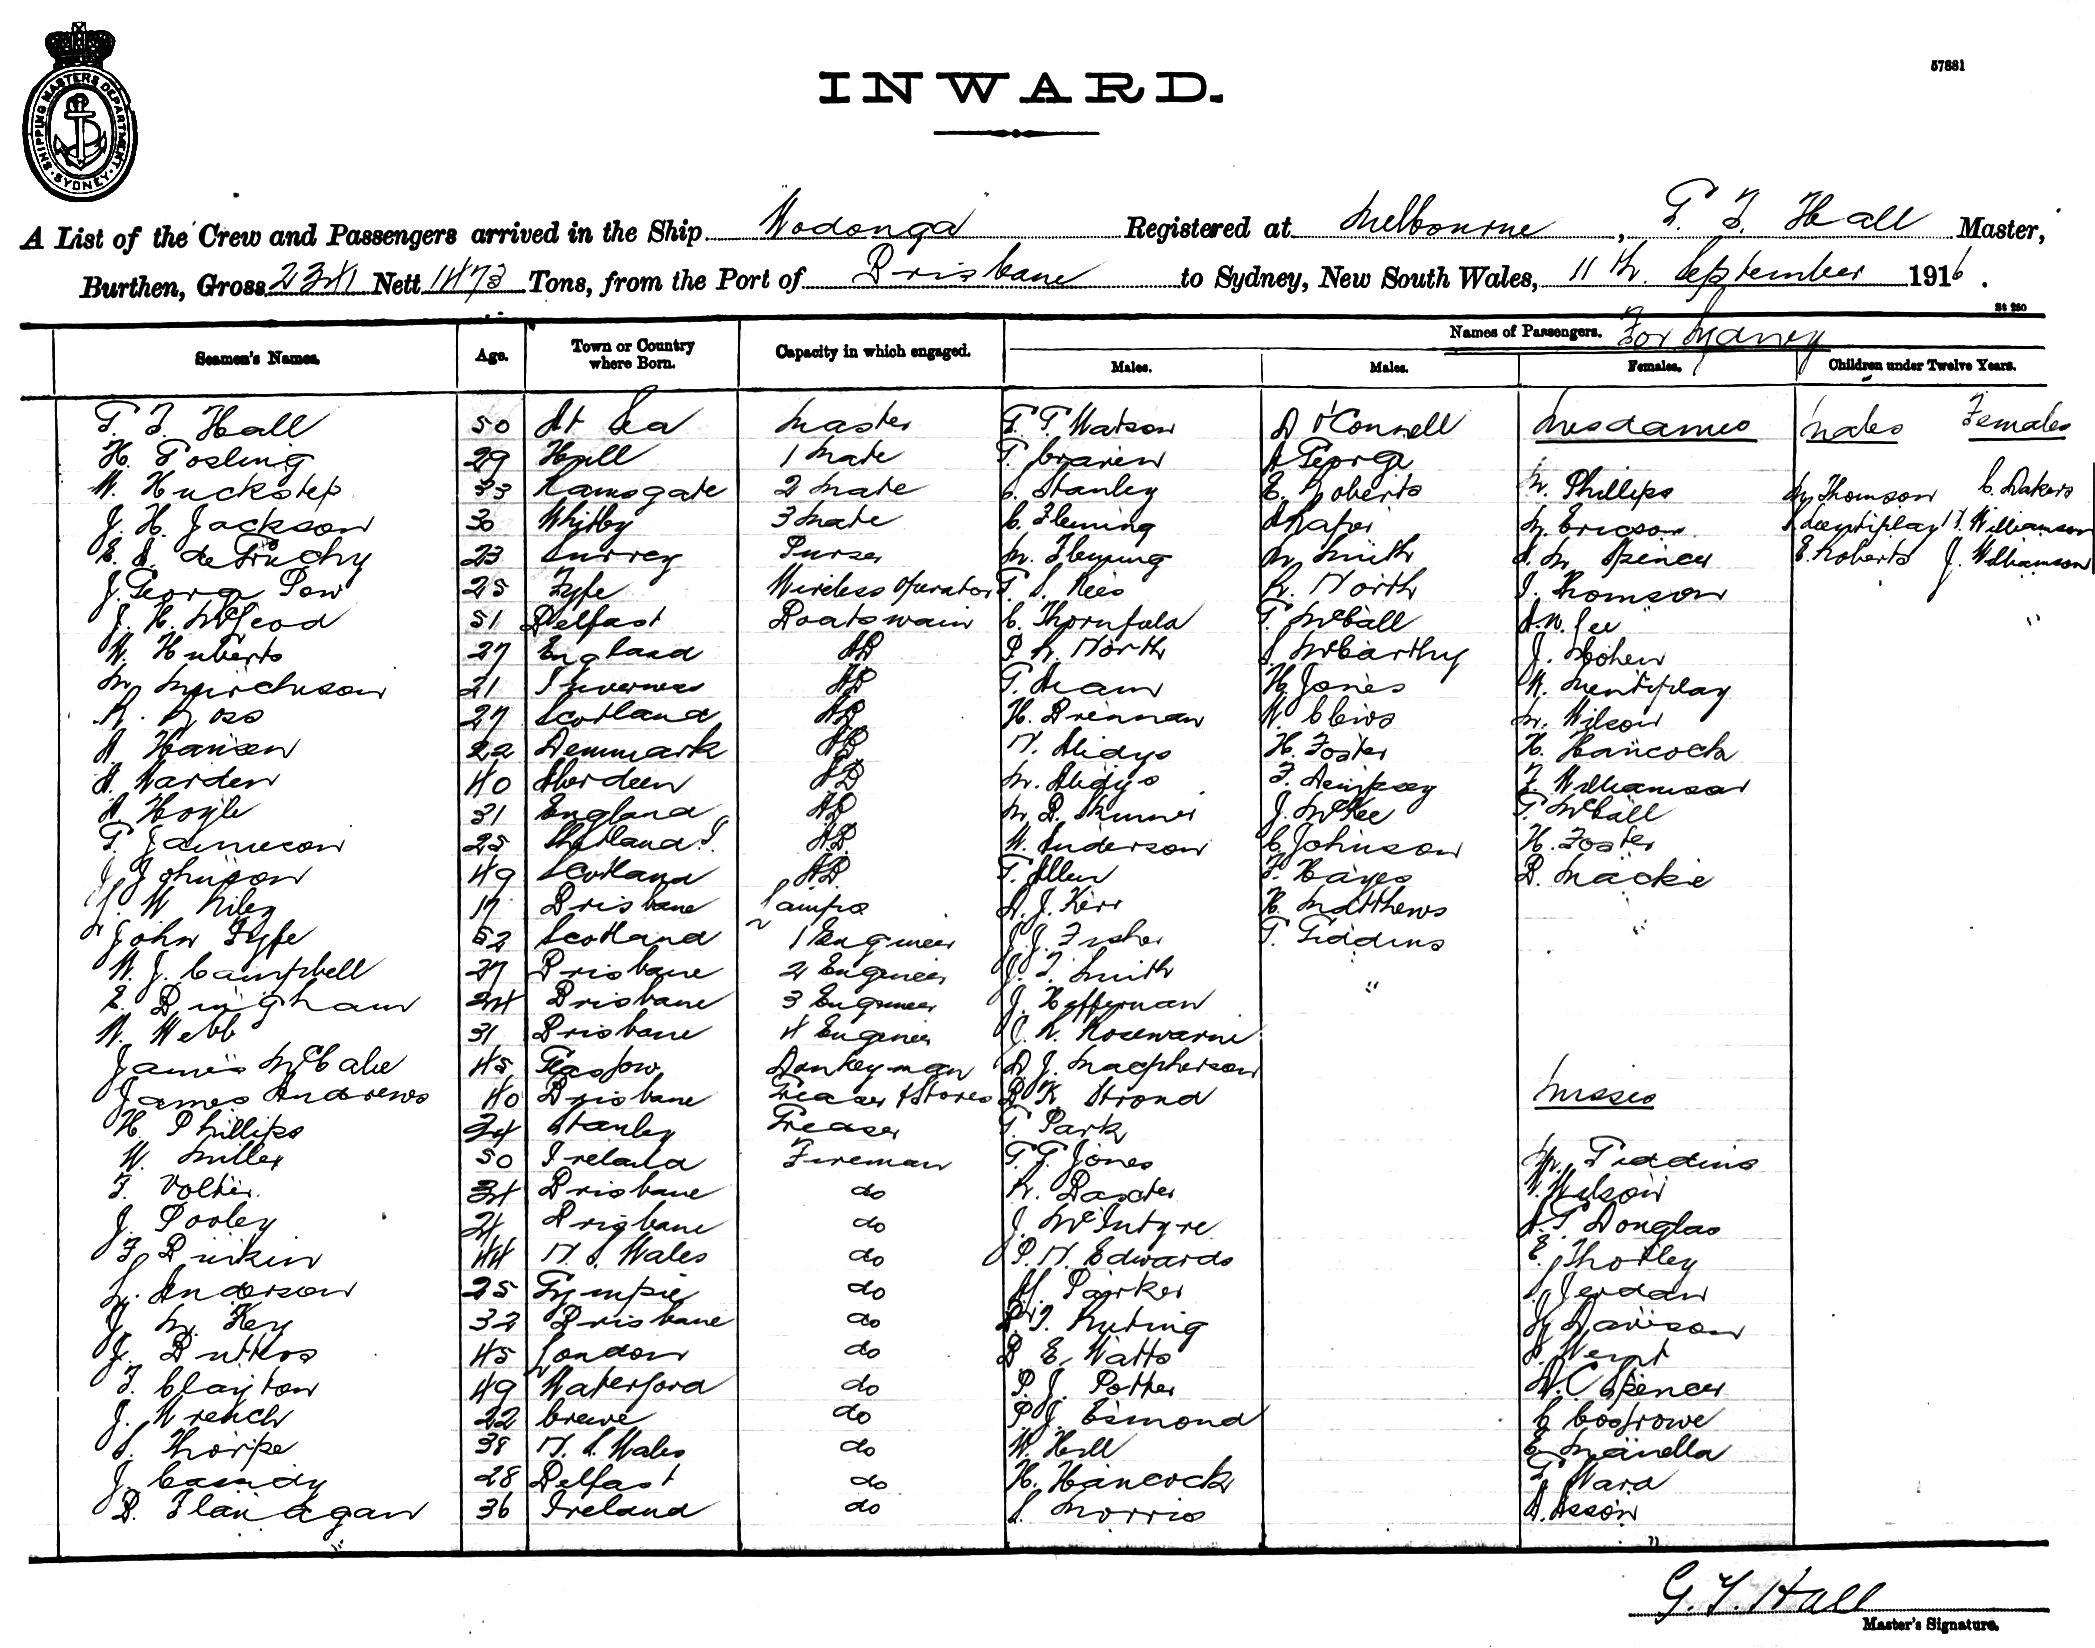 SHIPPING MASTERS DEPARTMENT
SYDNEY
57881
INWARD.
A List of the Crew and Passengers arrived in the Ship Wodonga Registered at Melbourne, G. T. Hall Master,
Burthen, Gross 2341 Nett 1473 Tons, from the Port of Brisbane to Sydney, New South Wales, 11th. September 1916.
St 250
Names of Passengers. For Sydney
Seamen's Names. Age. Town or Country where Born. Capacity in which engaged. Males. Males. Females. Children under Twelve Years.
G. T. Hall 50 At Sea Master G. T. Watson D O'Connell Mesdames Males Females
H. Gosling 29 Hull 1 Mate G. A George
W. Huckstep 33 Ramsgate 2 Mate C. Stanley E. Roberts M. Phillips Thomson C. Dakers
J. H. Jackson 30 Whitby 3 Mate C. Fleming M. Ericson Williamson
E. A. de Gruchy 23 Surrey Purser M. Fleming M Smith A. M Spencer E. Roberts J. Williamson
J. George Pow 25 Fyfe Wireless Operator G. S. Rees R. North J. Thomson
J. H. McLeod 51 Belfast Boatswain C. G. McCall A. W. Lee
W. Huberts 27 England AB P. R. North McCarthy J. Cohen
M. Murchison 21 Inverness AB G. H. Jones R. Mentiplay
R. Ross 27 Scotland AB H. Brennan W. M. Wilson
A. Hansen 22 Denmark AB N. H. Foster H. Hancock
A. Warden 40 Aberdeen AB M. F. Dempsey F. Williamson
A Hoyle 31 England AB M. B. Skinner J. McKee G. McCall
G. Jamieson 25 Shetland I. A.B. W. Anderson C. Johnson H. Foster
J. Johnson 49 Scotland A.B. G. Allen F. Hayes B. Mackie
J. W Riley 17 Brisbane Lamps A. J. Kerr H. Matthews
John Fyfe 52 Scotland 1 Engineer J. J. Fisher G. Giddins
W. J. Campbell 27 Brisbane 2 Engineer J. T. Smith
E. Bingham 34 Brisbane 3 Engineer J. Heffernan
W. Webb 31 Brisbane 4 Engineer J. R. Rosewarne
James McCabe 45 Glasgow Donkeyman D. J. Macpherson
James Andrews 40 Brisbane Greaser & Stores B K Strond Misses
H. Phillips 34 Stanley Greaser G. Park
W. Miller 50 Ireland Fireman G. G. Jones M. Giddins
F. Volker 34 Brisbane do R. Baxter V. Wilson
J. Pooley 24 Brisbane do J. McIntyre A. G. Douglas
F. Durkin 44 N. S. Wales do P. N. Edwards E. Thorley
M. Anderson 25 Gympie do M. Parker Jerdan
J. M. Key 32 Brisbane do B. T. Nuting Davison
J. Buttros 45 London do B E. Watts
F. Clayton 49 Waterford do P. J. Potter D. C. Spencer
J. Wrench 22 Crewe do P. J. Esmond C Cosgrove
S. Thorpe 38 N. S. Wales do W. Hill E. Manella
J. Cassidy 28 Belfast do H. Hancock G Ward
B. Flanagan 36 Ireland do S. Morris A. Asson
G. T. Hall
Master's Signature.